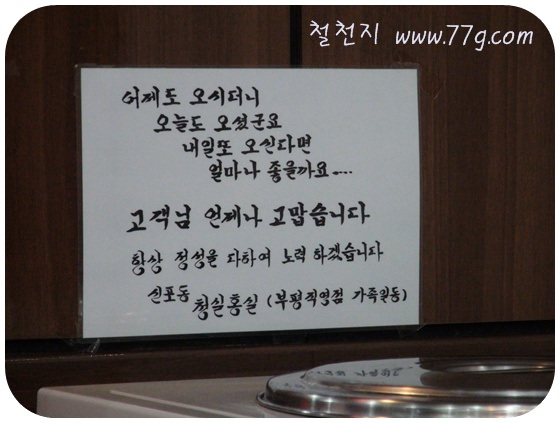 철천지 www.77g.com
어제도 오시더니
오늘도 오셨군요
내일또 오신다면
얼마나 좋을까요....
고객님 언제나 고맙습니다
항상 정성을 다하여 노력 하겠습니다
신포동 청실홍실 (부평직영점 가족일동)